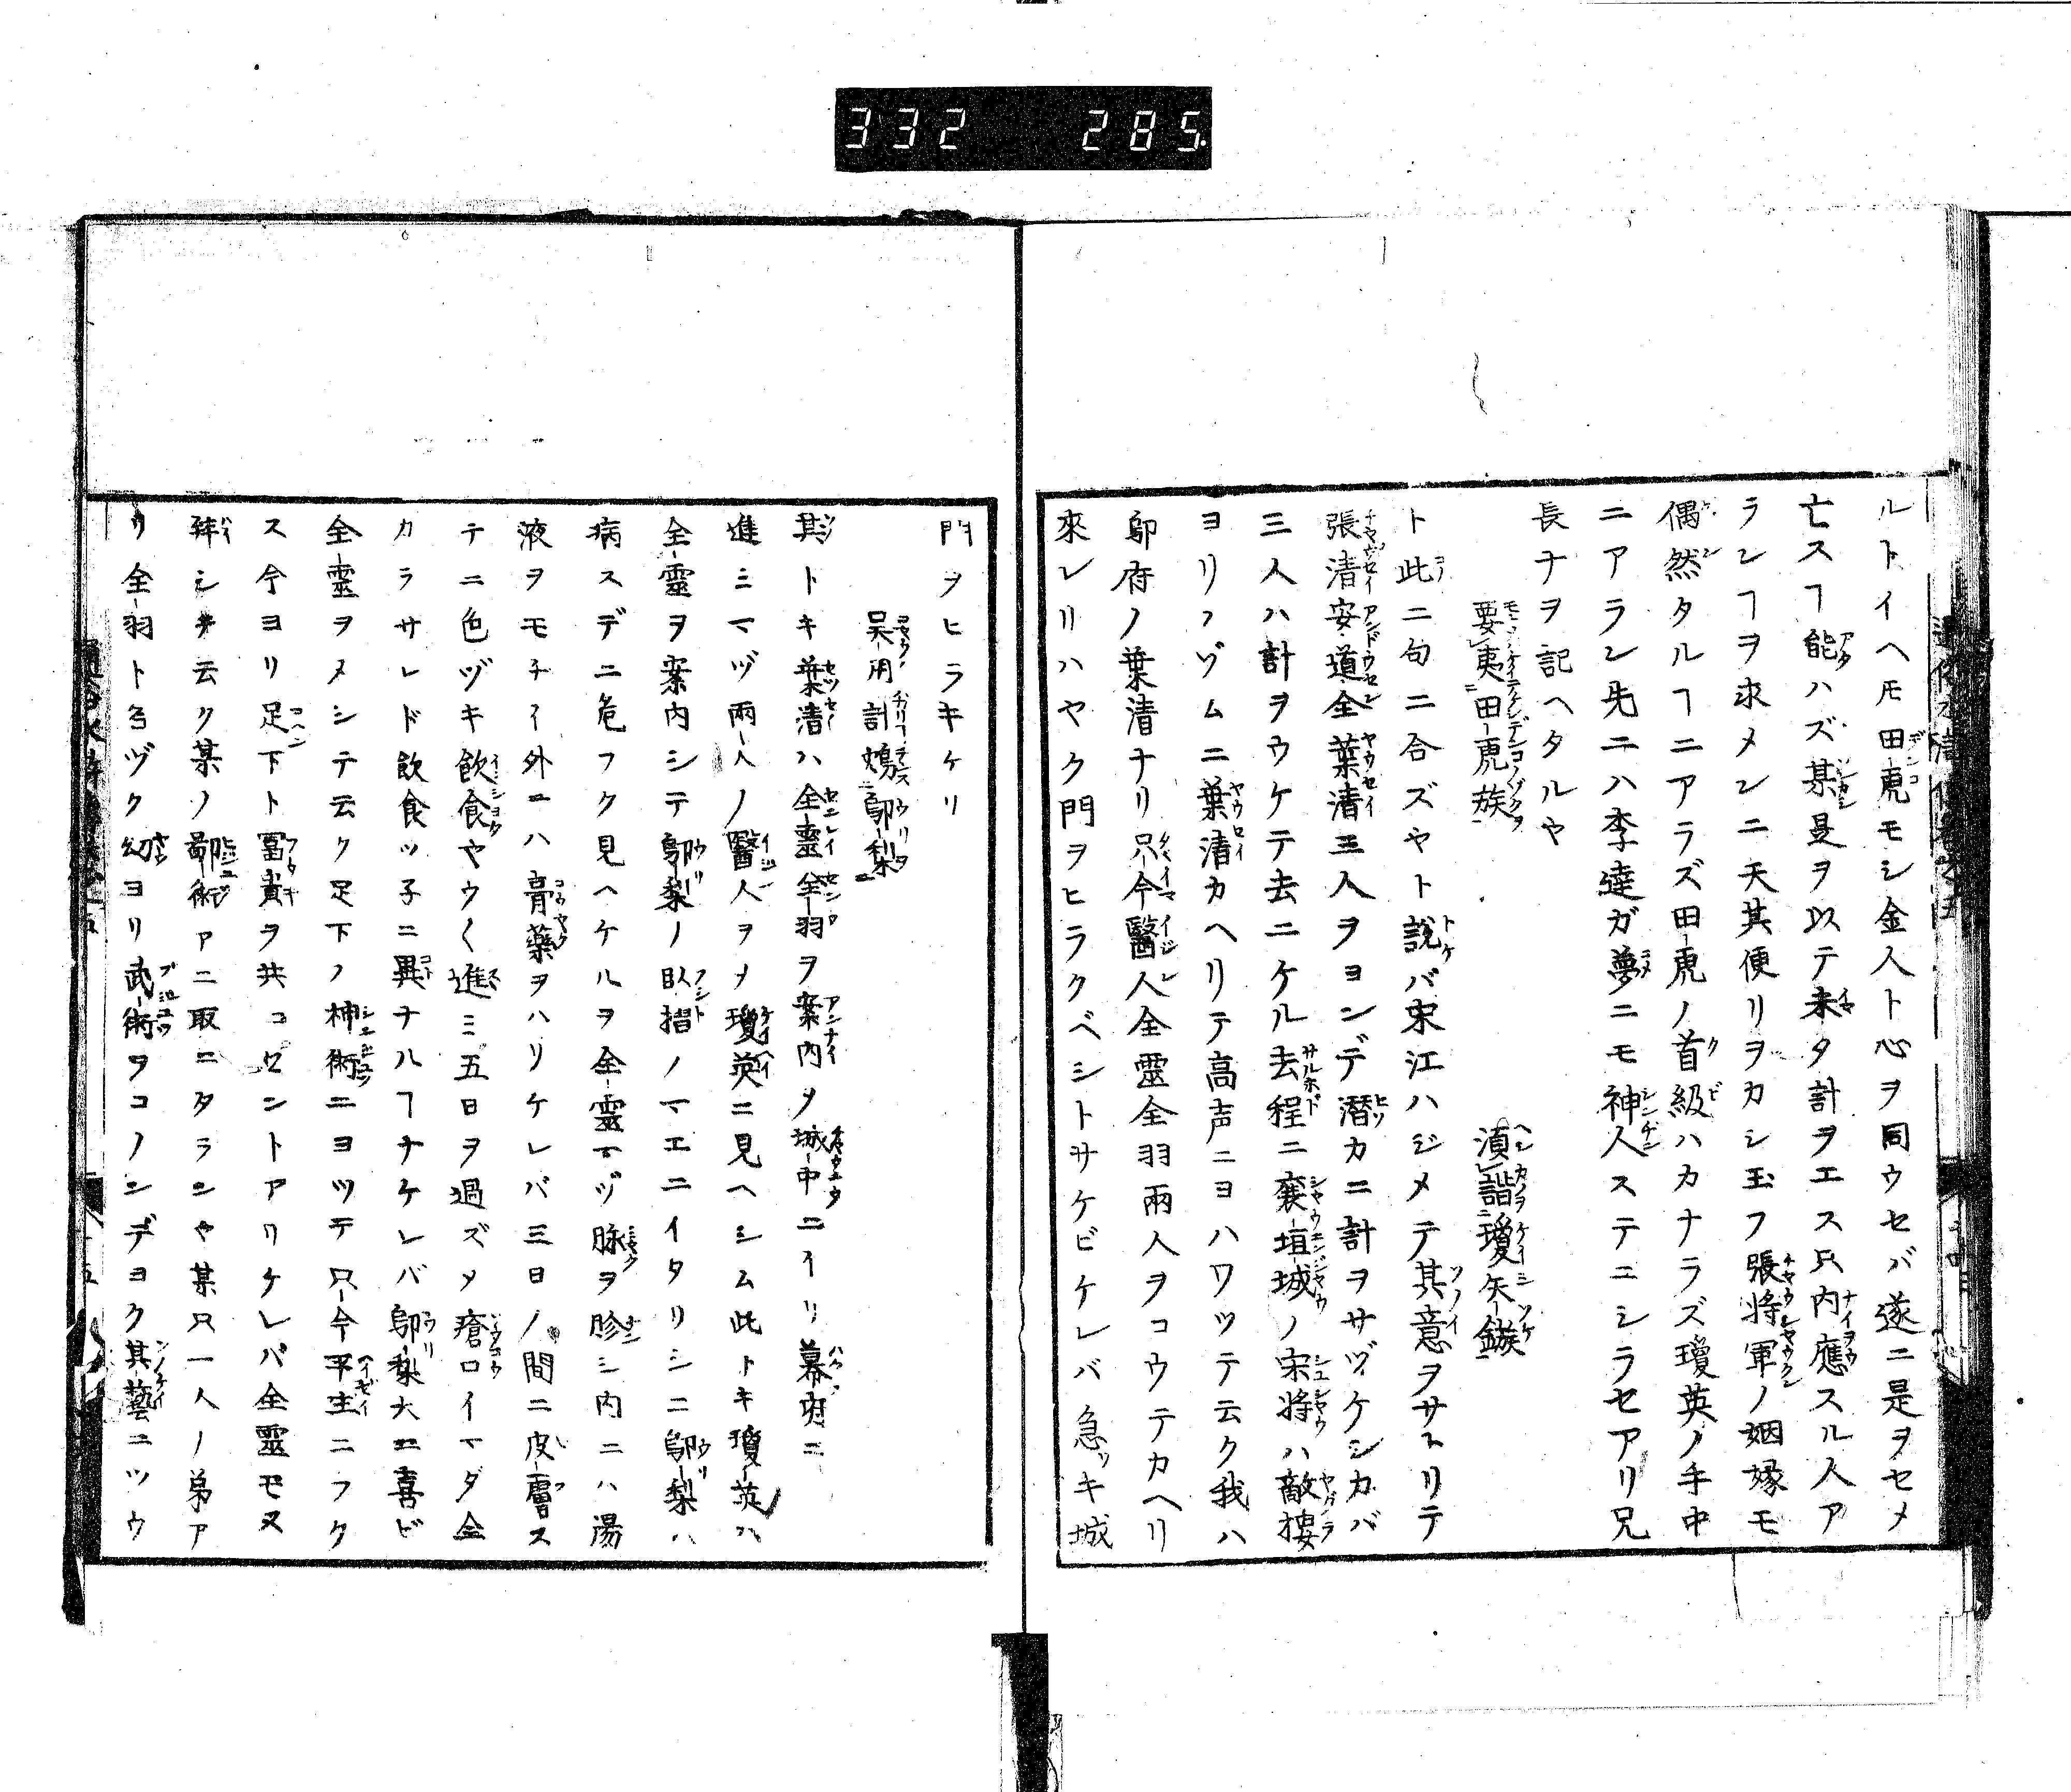 332 285
ルトイヘモ田虎モシ金人ト心ヲ同ウセバ遂ニ是ヲセメ
亡スヿ能ハズ某是ヲ以テ未タ計ヲエス只内應スル人ア
ランヿヲ求メンニ天其便リヲカシ玉フ張将軍ノ姻縁モ
偶然タルヿニアラズ田虎ノ首級ハカナラズ瓊英ノ手中
ニアラン先ニハ李逵ガ夢ニモ神人ステニシラセアリ兄
長ナヲ記ヘタルヤ
要夷田虎族 須諧瓊矢鏃
ト此ニ句ニ合ズヤト説バ宋江ハジメテ其意ヲサトリテ
張清安道全葉清三人ヲヨンデ潜カニ計ヲサヅケシカバ
三人ハ計ヲウケテ去ニケル去程ニ襄垣城ノ宋将ハ敵樓
ヨリノゾムニ葉清カヘリテ高声ニヨハワツテ云ク我ハ
鄔府ノ葉清ナリ只今醫人全靈全羽兩人ヲコウテカヘリ
來レリハヤク門ヲヒラクベシトサケビケレバ急ッキ城
門ヲヒラキケリ
呉用計鴆鄔梨
其トキ葉清ハ全靈全羽ヲ案内ノ城中ニイリ幕府ニ
進ミマヅ兩人ノ醫人ヲメ瓊英ニ見ヘシム此トキ瓊英ハ
全靈ヲ案内シテ鄔梨ノ臥榻ノマエニイタリシニ鄔梨ハ
病スデニ危フク見ヘケルヲ全靈マヅ脉ヲ胗シ内ニハ湯
液ヲモチイ外ニハ膏藥ヲハリケレバ三日ノ間ニ皮膚ス
テニ色ヅキ飲食ヤウ〱進ミ五日ヲ過ズメ瘡口イマダ全
カラサレド飲食ッ子ニ異ナルヿナケレバ鄔梨大ニ喜ビ
全靈ヲメシテ云ク足下ノ神術ニヨツテ只今平生ニフク
ス今ヨリ足下ト冨貴ヲ共コセントアリケレバ全靈モヌ
拜シテ云ク某ノ鄙術アニ取ニタランヤ某只一人ノ弟ア
リ全羽ト名ヅク幼ヨリ武術ヲコノンデヨク其藝ニツウ